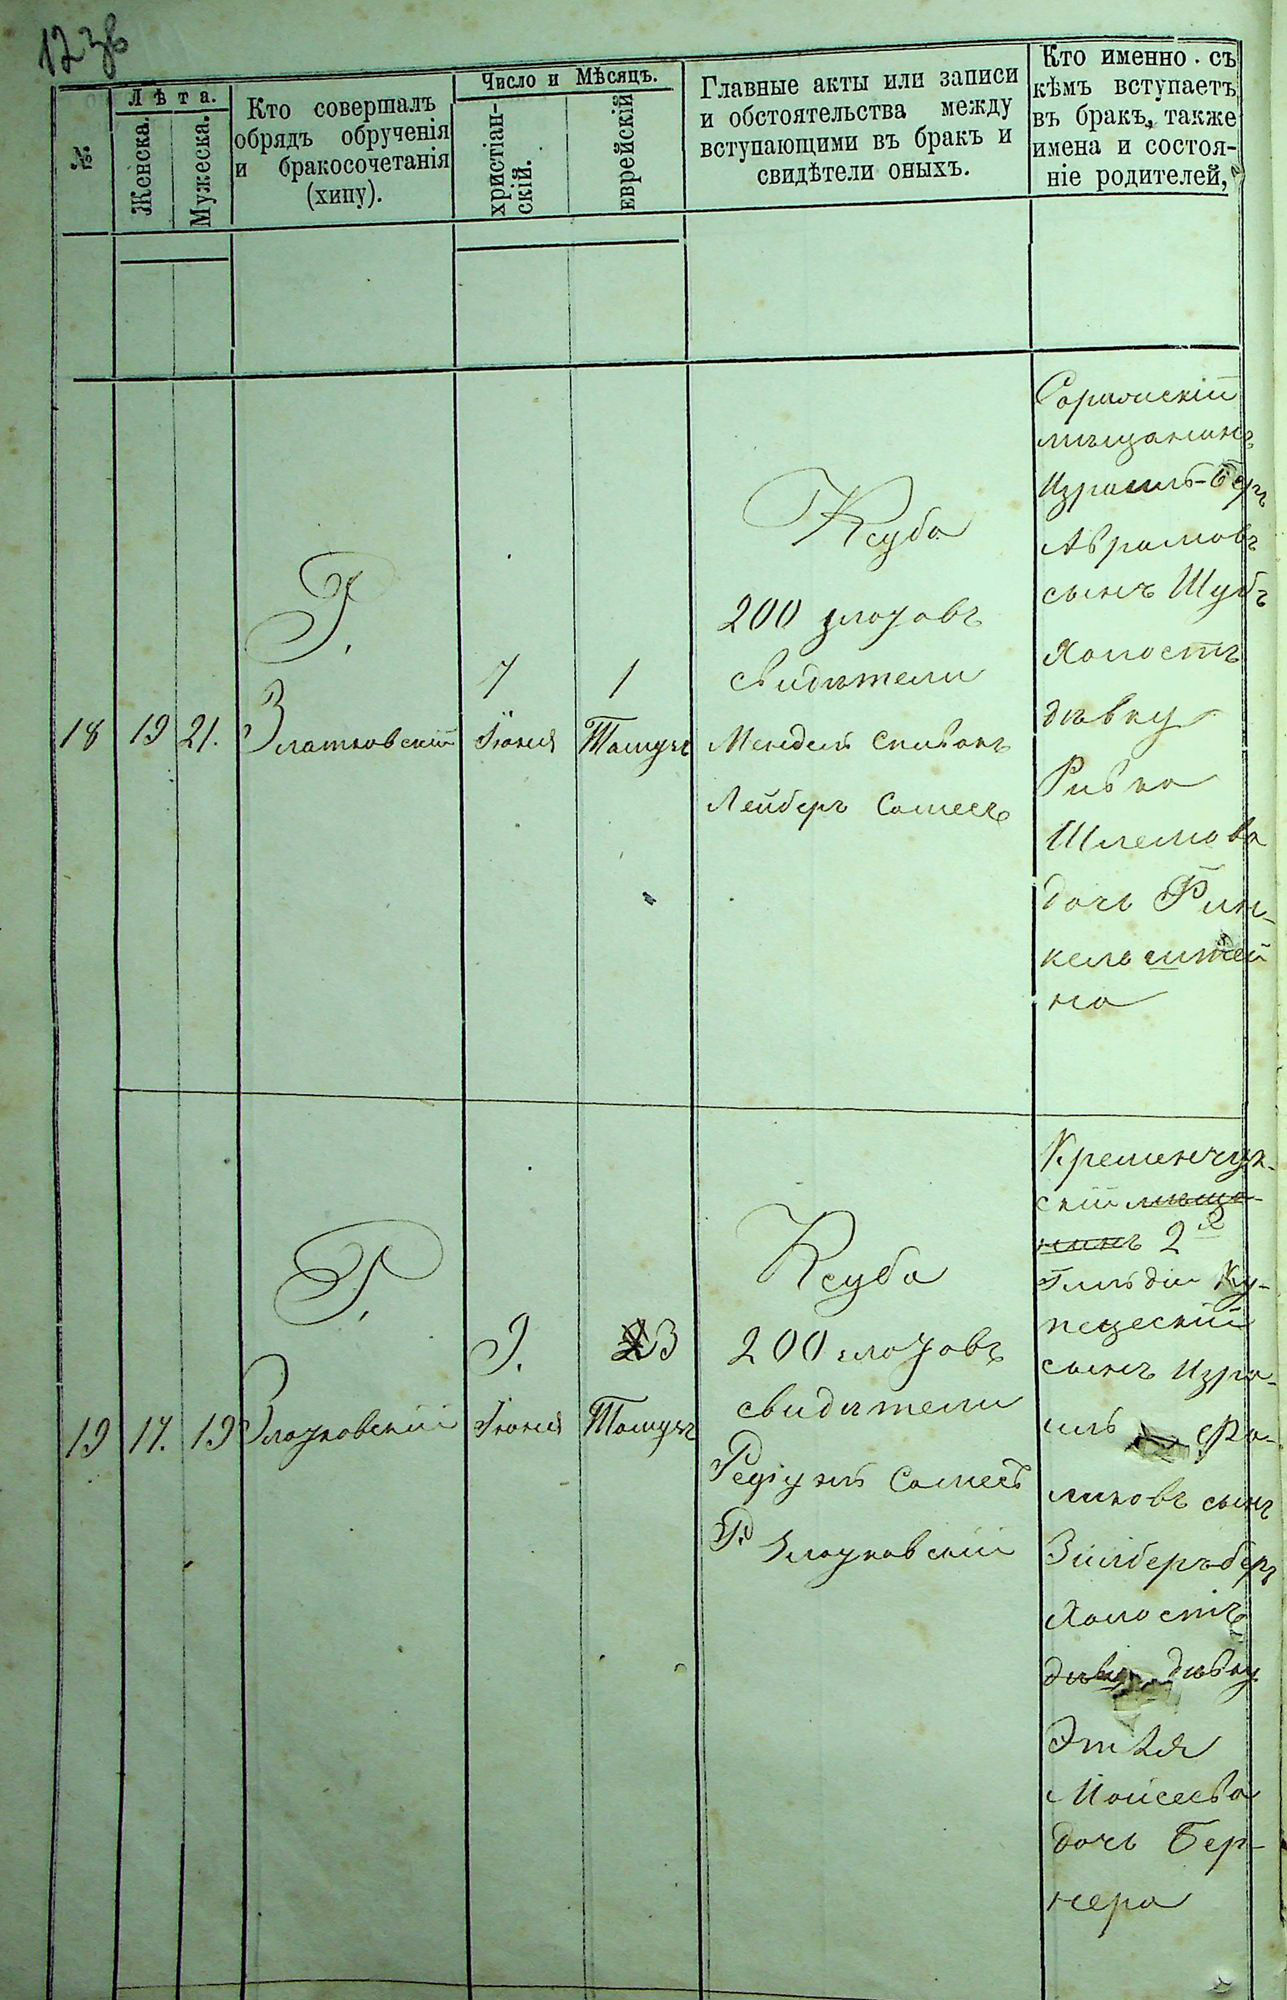 123об
№.
Лѣта.
Женска.
Мужеска.
Кто совершалъ
обрядъ обрученія
и бракосочетанія
(хипу).
Число и Мѣсяцъ.
христіан-
скій.
еврейскій
Главные акты или записи
и обстоятельства между
вступающими въ бракъ и
свидѣтели оныхъ.
Кто именно съ
кѣмъ вступаетъ
въ бракъ, также
имена и состоя-
ніе родителей,
18
19
21.
Р.
Златковскій
7
Іюня
1
Тамузъ
Ксуба
200 злотовъ
свидѣтели
Мендель Спивакъ
Лейберъ Самесъ
мѣщанинъ
Израиль-Беръ
Аврамовъ
сынъ Шубъ
холостъ
дѣвку
Ривка
Шлемова
дочь Фин-
кельштей
на
19
17.
19
Р.
Златковскій
9.
Іюня
3
Тамузъ
Ксуба
200 злотовъ
свидѣтели
Самесъ
Р. Златковскій
Кременчуг-
скій мѣща-
нинъ 2й
Гильдіи Ку-
печескій
сынъ Изра-
иль
сынъ
Зильберъ-беръ
холостъ
дѣвку дѣвку
Этля
Моисеева
дочь Бер-
нера